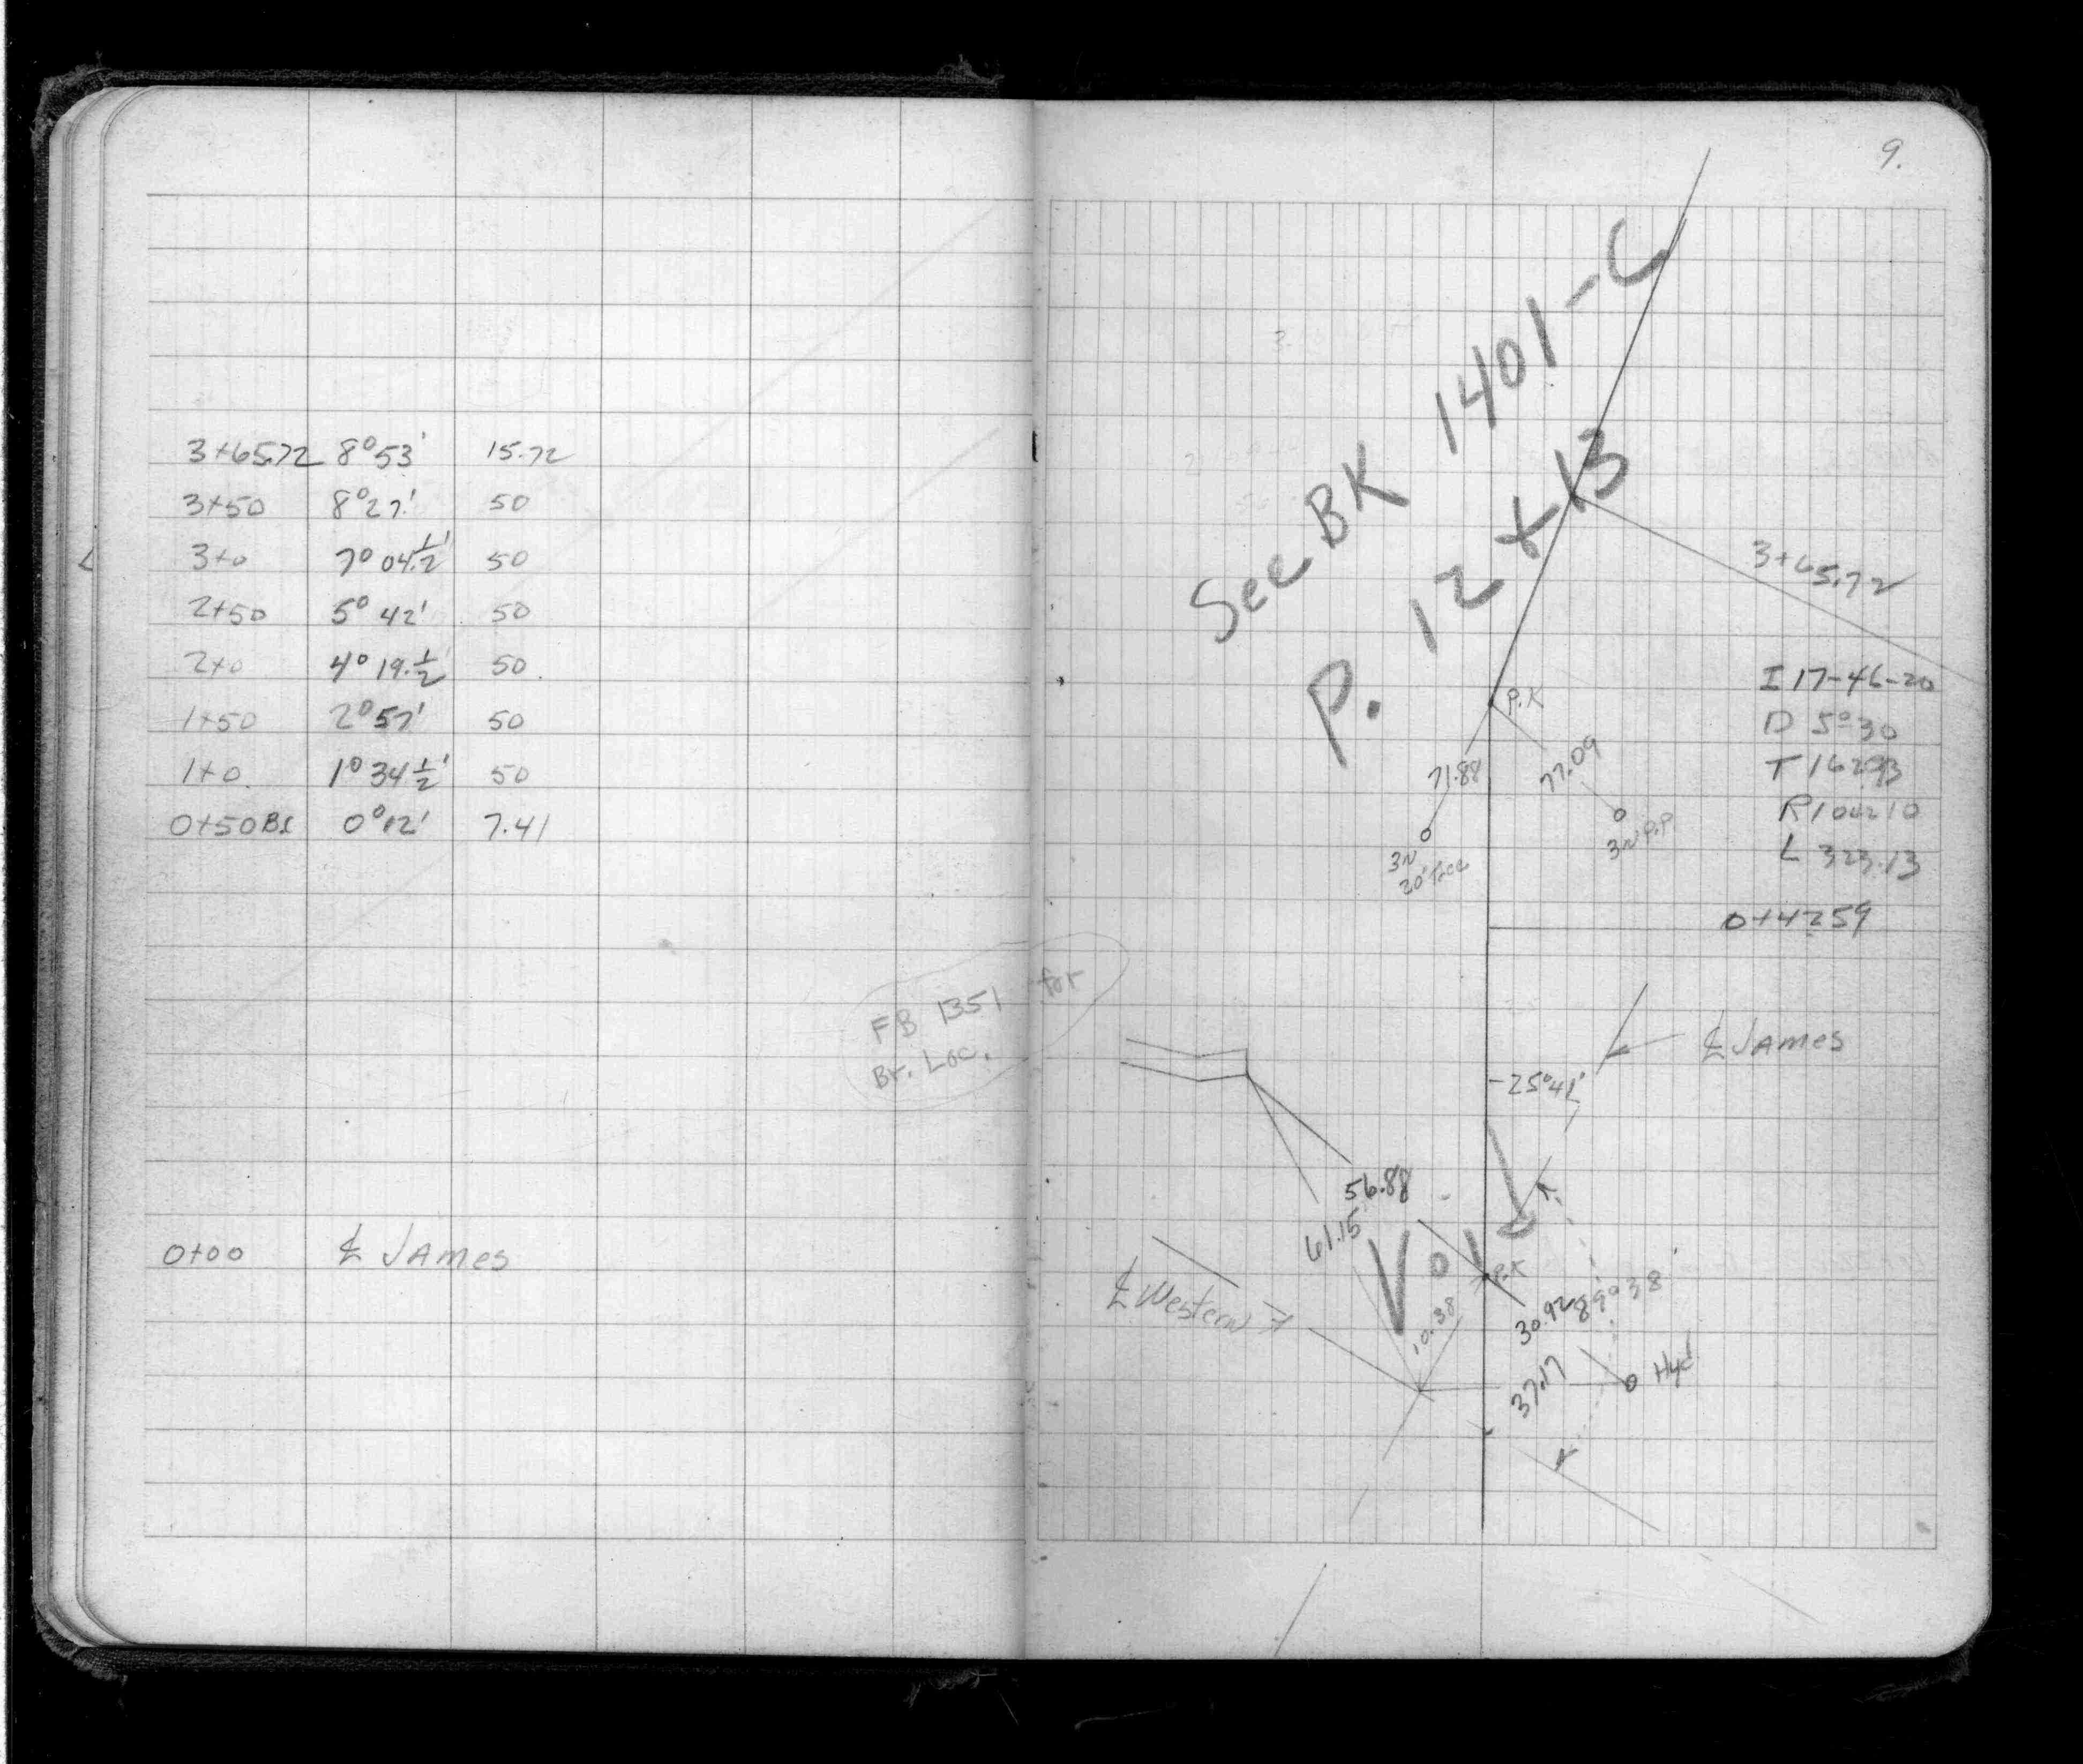 3+65.72 8°53' 15.72
3+50 8°27' 50
3+0 7°04½' 50
2+50 5°42' 50
2+0 4°19½' 50
1+50 2°57' 50
1+0 1°34½' 50
0+50 0°12' 7.41
FB 1351 for
Br. Loc.
0+00 ℄ JAMES
9.
See BK 1401-C
P. 12 + 13
3+65.72
P.K
I 17-46-20
D 5°30
T 162.93
R 1042 10
L 323.13
71.88
77.09
3N
20" Tree
3N P.P
0+42 59
℄ JAMES
25°41'
56.88
61.15
VOID
P.K
℄ Western
10.38
30.92
89°38'
37.17
Hyd